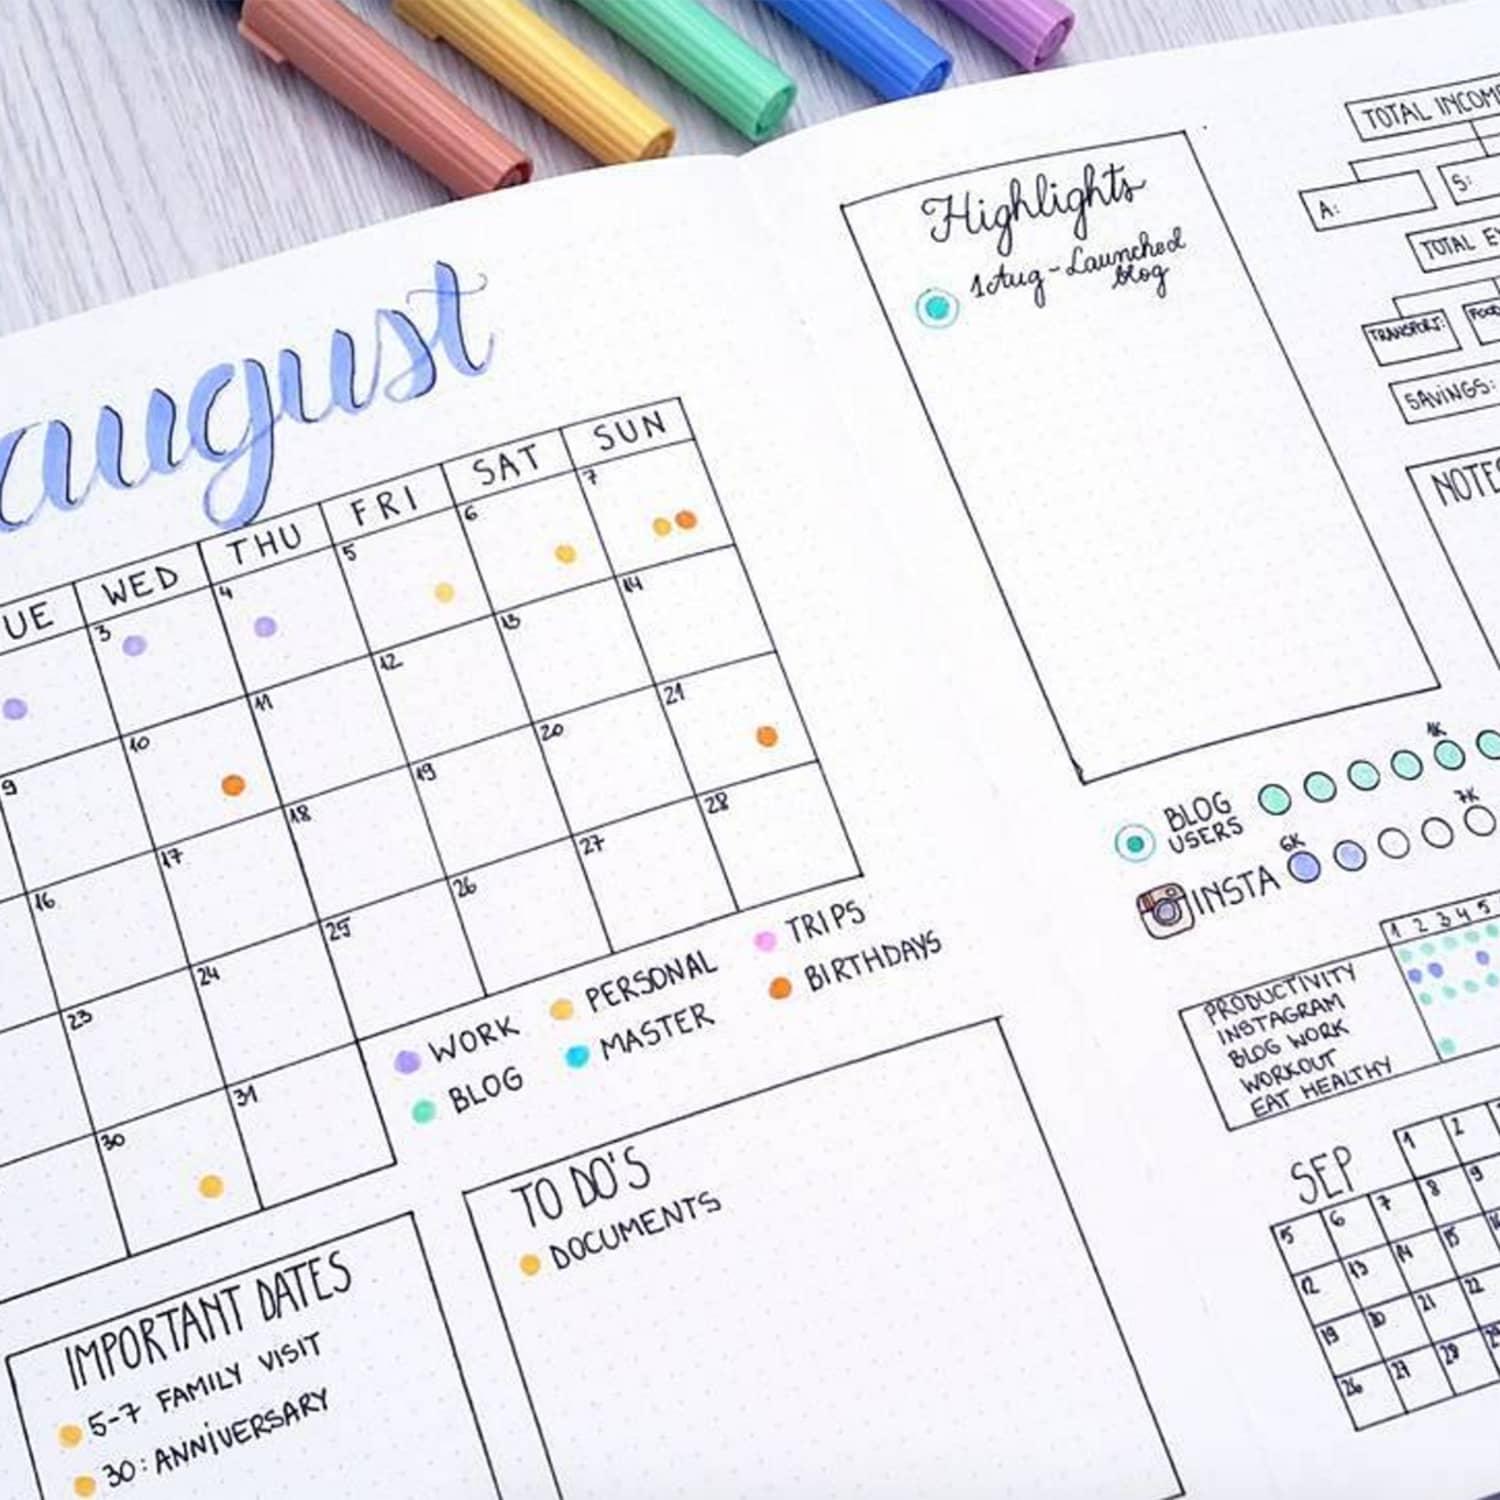 august
UE WED THU FRI SAT SUN
3 4 5 6 7
9 10 11 12 13 14
16 17 18 19 20 21
23 24 25 26 27 28
30 31
WORK
PERSONAL
TRIPS
BLOG
MASTER
BIRTHDAYS
IMPORTANT DATES
5-7 FAMILY VISIT
30: ANNIVERSARY
TO DO'S
DOCUMENTS
Highlights
1 Aug - Launched
blog
TOTAL INCOM
A:
S:
TOTAL E
TRANSPORT:
FOOD
SAVINGS:
NOTES
BLOG
USERS
1K
INSTA
6K
7K
1 2 3 4 5
PRODUCTIVITY
INSTAGRAM
BLOG WORK
WORKOUT
EAT HEALTHY
SEP
1 2
5 6 7 8 9
12 13 14 15 16
19 20 21 22
26 27 28 29